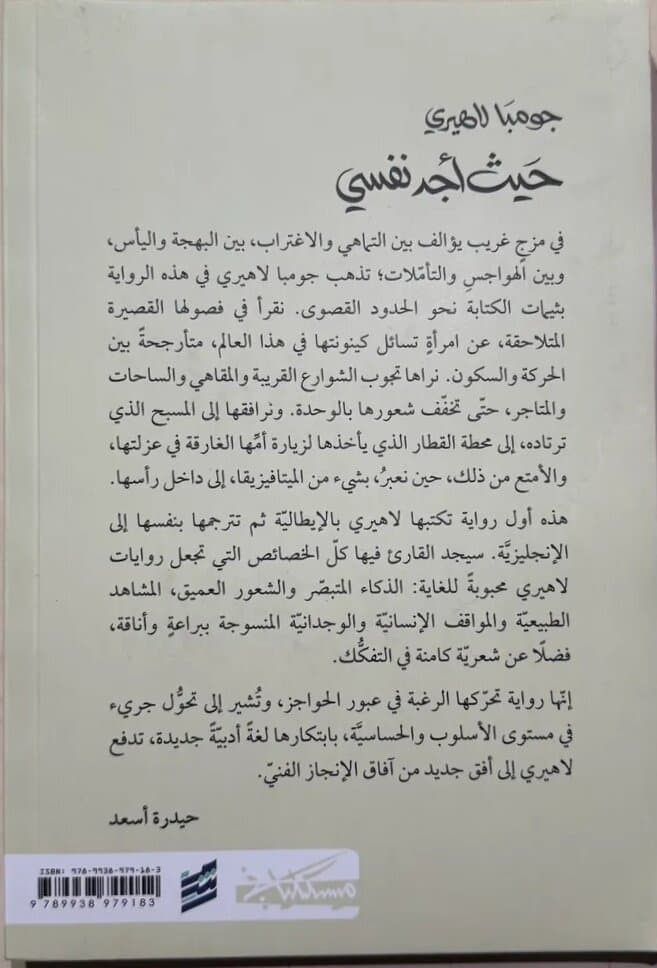 جومبَا لاهيري
حَيث أجد نفسي
في مزجٍ غريب يؤالف بين التماهي والاغتراب، بين البهجة واليأس،
وبين الهواجسِ والتأمّلات؛ تذهب جومبا لاهيري في هذه الرواية
بثيمات الكتابة نحو الحدود القصوى. نقرأ في فصولها القصيرة
المتلاحقة، عن امرأةٍ تسائل كينونتها في هذا العالم، متأرجحةً بين
الحركة والسكون. نراها تجوب الشوارع القريبة والمقاهي والساحات
والمتاجر، حتّى تخفّف شعورها بالوحدة. ونرافقها إلى المسبح الذي
ترتاده، إلى محطة القطار الذي يأخذها لزيارة أمِّها الغارقة في عزلتها،
والأمتع من ذلك، حين نعبرُ، بشيء من الميتافيزيقا، إلى داخل رأسها.
هذه أول رواية تكتبها لاهيري بالإيطاليّة ثم تترجمها بنفسها إلى
الإنجليزيَّة. سيجد القارئ فيها كلّ الخصائص التي تجعل روايات
لاهيري محبوبةً للغاية: الذكاء المتبصّر والشعور العميق، المشاهد
الطبيعيّة والمواقف الإنسانيّة والوجدانيّة المنسوجة ببراعةٍ وأناقة،
فضلًا عن شعريّة كامنة في التفكُّك.
إنّها رواية تحرّكها الرغبة في عبور الحواجز، وتُشير إلى تحوُّل جريء
في مستوى الأسلوب والحساسيَّة، بابتكارها لغةً أدبيّةً جديدة، تدفع
لاهيري إلى أفق جديد من آفاق الإنجاز الفنيّ.
حيدرة أسعد
ISBN: 978-9938-979-18-3
9 789938 979183
مسكيلياني